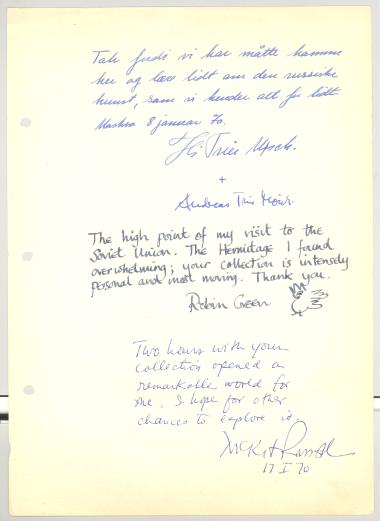 Tak fordi vi har måtte komme
her og lære lidt om den russiske
kunst, som vi kender alt for lidt
Moskva 8 januar 70.
Tries
+
Andreas Tries
The high point of my visit to the
Soviet Union. The Hermitage I found
overwhelming; your collection is intensely
personal and most moving. Thank you.
Robin Green
Two hours with your
collection opened a
remarkable world for
me. I hope for other
chances to explore it.
McKit Russell
17 I 70